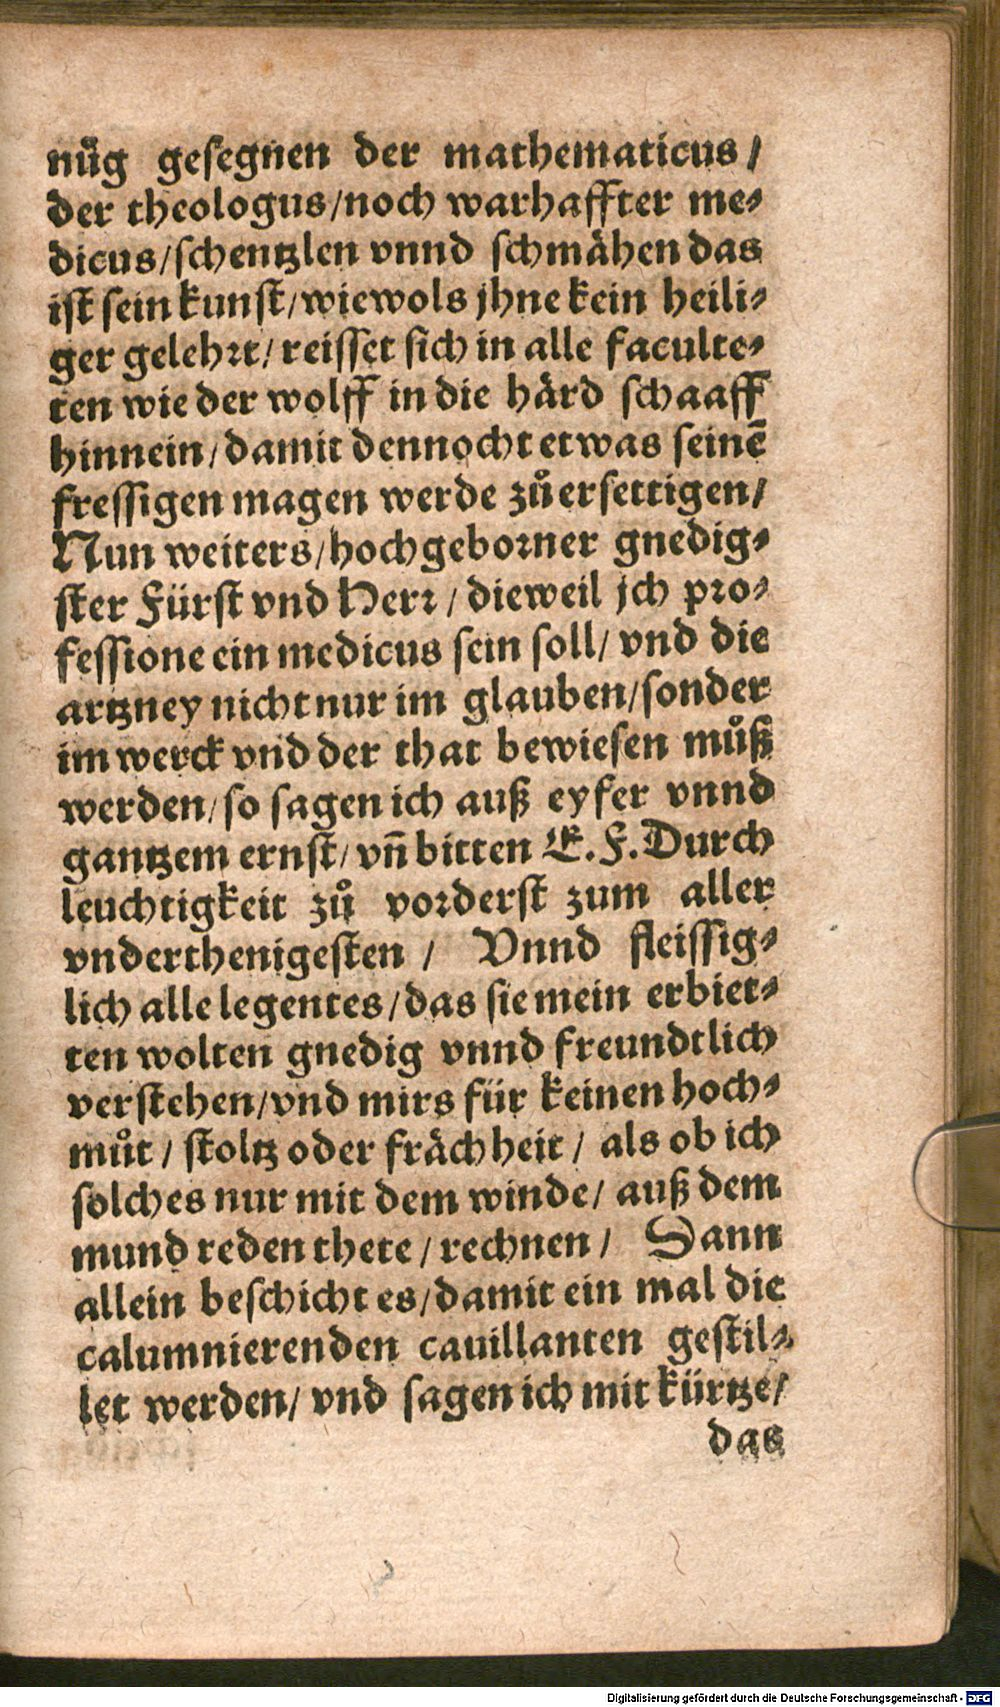 nuͤg gesegnen der mathematicus /
der theologus / noch warhaffter me⸗
dicus / schentzlen vnnd schmaͤhen das
ist sein kunst / wiewols jhne kein heili⸗
ger gelehrt / reisset sich in alle faculte⸗
ten wie der wolff in die haͤrd schaaff
hinnein / damit dennocht etwas seinē
fressigen magen werde zuͦ ersettigen /
Nun weiters / hochgeborner gnedig⸗
ster Fürst vnd Herr / dieweil jch pro⸗
fessione ein medicus sein soll / vnd die
artzney nicht nur im glauben / sonder
im werck vnd der that bewiesen muͦß
werden / so sagen ich auß eyfer vnnd
gantzem ernst / vñ bitten E. F. Durch
leuchtigkeit zuͦ vorderst zum aller
vnderthenigesten / Vnnd fleissig⸗
lich alle legentes / das sie mein erbiet⸗
ten wolten gnedig vnnd freundtlich
verstehen / vnd mirs für keinen hoch⸗
muͦt / stoltz oder fraͤchheit / als ob ich
solches nur mit dem winde / auß dem
mund reden thete / rechnen / Dann
allein beschicht es / damit ein mal die
calumnierenden cauillanten gestil⸗
let werden / vnd sagen ich mit kürtze /
das
Digitalisierung gefördert durch die Deutsche Forschungsgemeinschaft - DFG